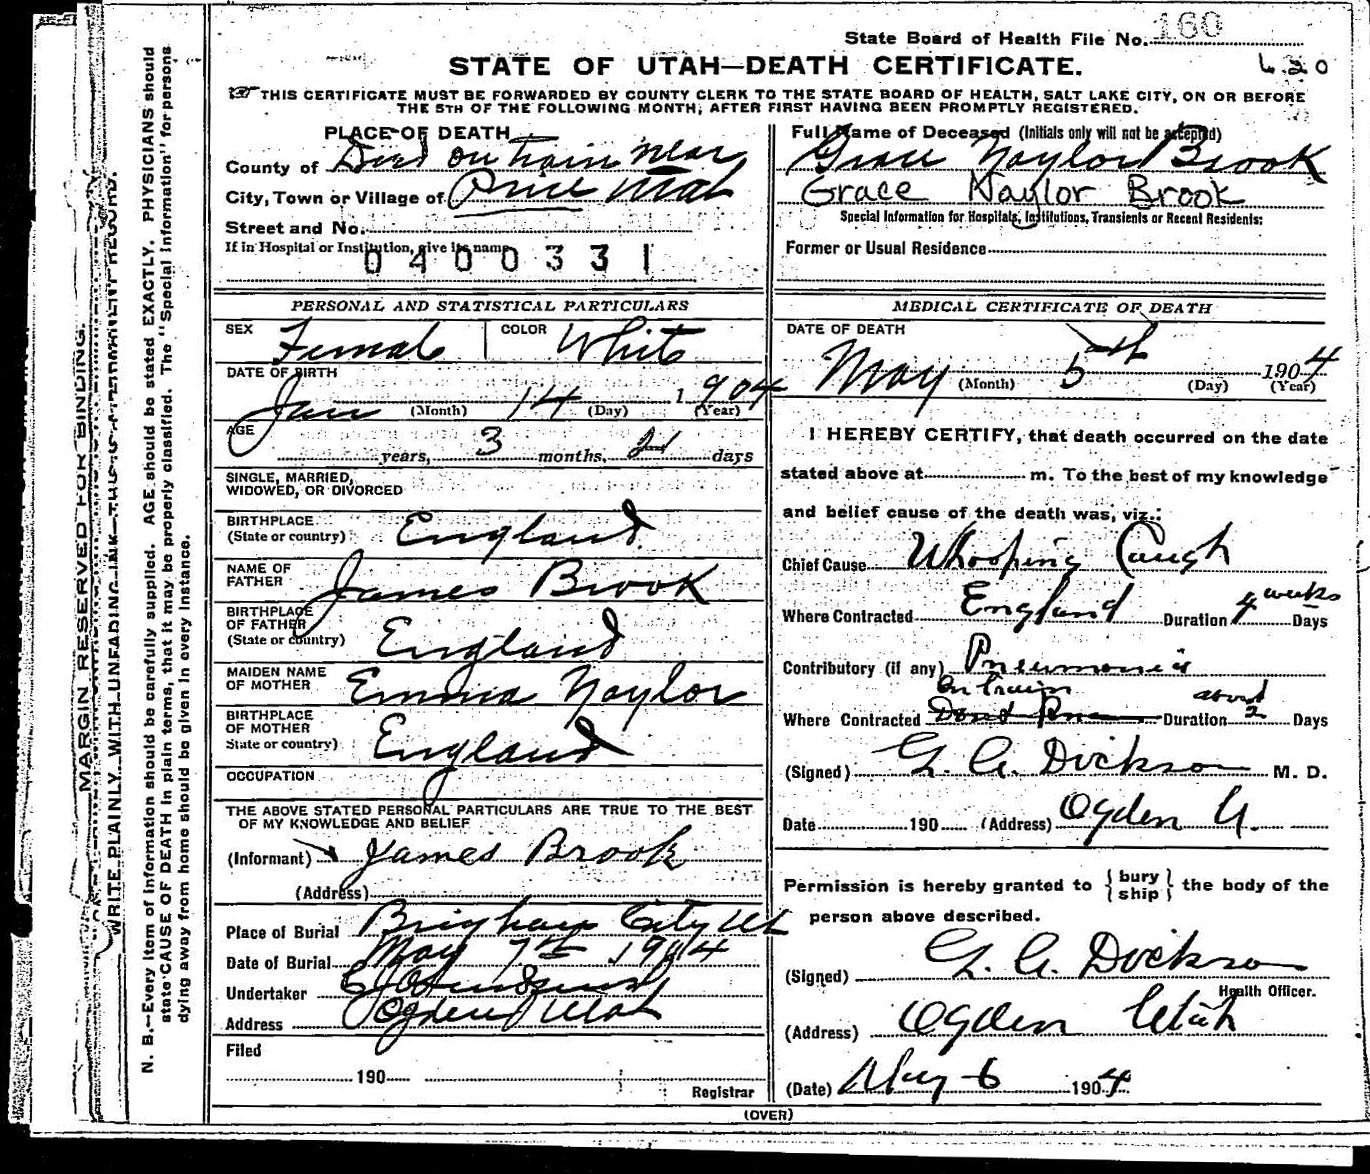 State Board of Health File No. 160
STATE OF UTAH—DEATH CERTIFICATE. 620
THIS CERTIFICATE MUST BE FORWARDED BY COUNTY CLERK TO THE STATE BOARD OF HEALTH, SALT LAKE CITY, ON OR BEFORE
THE 5TH OF THE FOLLOWING MONTH, AFTER FIRST HAVING BEEN PROMPTLY REGISTERED.
PLACE OF DEATH
County of Died on train near
City, Town or Village of Price Utah
Street and No.
If in Hospital or Institution, give its name
0400331
Full Name of Deceased (Initials only will not be accepted)
Grace Naylor Brook
Grace Naylor Brook
Special Information for Hospitals, Institutions, Transients or Recent Residents:
Former or Usual Residence
PERSONAL AND STATISTICAL PARTICULARS
SEX Female COLOR White
DATE OF BIRTH
Jan (Month) 14 (Day) 1904 (Year)
AGE
years, 3 months, days
SINGLE, MARRIED,
WIDOWED, OR DIVORCED
BIRTHPLACE
(State or country) England
NAME OF
FATHER James Brook
BIRTHPLACE
OF FATHER
(State or country) England
MAIDEN NAME
OF MOTHER Emma Naylor
BIRTHPLACE
OF MOTHER
State or country) England
OCCUPATION
THE ABOVE STATED PERSONAL PARTICULARS ARE TRUE TO THE BEST
OF MY KNOWLEDGE AND BELIEF
(Informant) James Brook
(Address)
Place of Burial Brigham City Ut
Date of Burial May 7th 1904
Undertaker
Address Ogden Utah
Filed
190
Registrar
MEDICAL CERTIFICATE OF DEATH
DATE OF DEATH
May (Month) 5th (Day) 1904 (Year)
I HEREBY CERTIFY, that death occurred on the date
stated above at m. To the best of my knowledge
and belief cause of the death was, viz.:
Chief Cause Whooping Caugh
Where Contracted England Duration 4 weeks Days
Contributory (if any) Pneumonia
On Train about
Where Contracted Duration 2 Days
(Signed) G. A. Dickson M. D.
Date 190 (Address) Ogden U.
Permission is hereby granted to {bury ship} the body of the
person above described.
(Signed) G. A. Dickson
Health Officer.
(Address) Ogden Utah
(Date) May 6 1904
(OVER)
MARGIN RESERVED FOR BINDING.
WRITE PLAINLY WITH UNFADING INK—THIS IS A PERMANENT RECORD.
N. B.—Every item of information should be carefully supplied. AGE should be stated EXACTLY. PHYSICIANS should
state CAUSE OF DEATH in plain terms, that it may be properly classified. The "Special Information" for persons
dying away from home should be given in every instance.